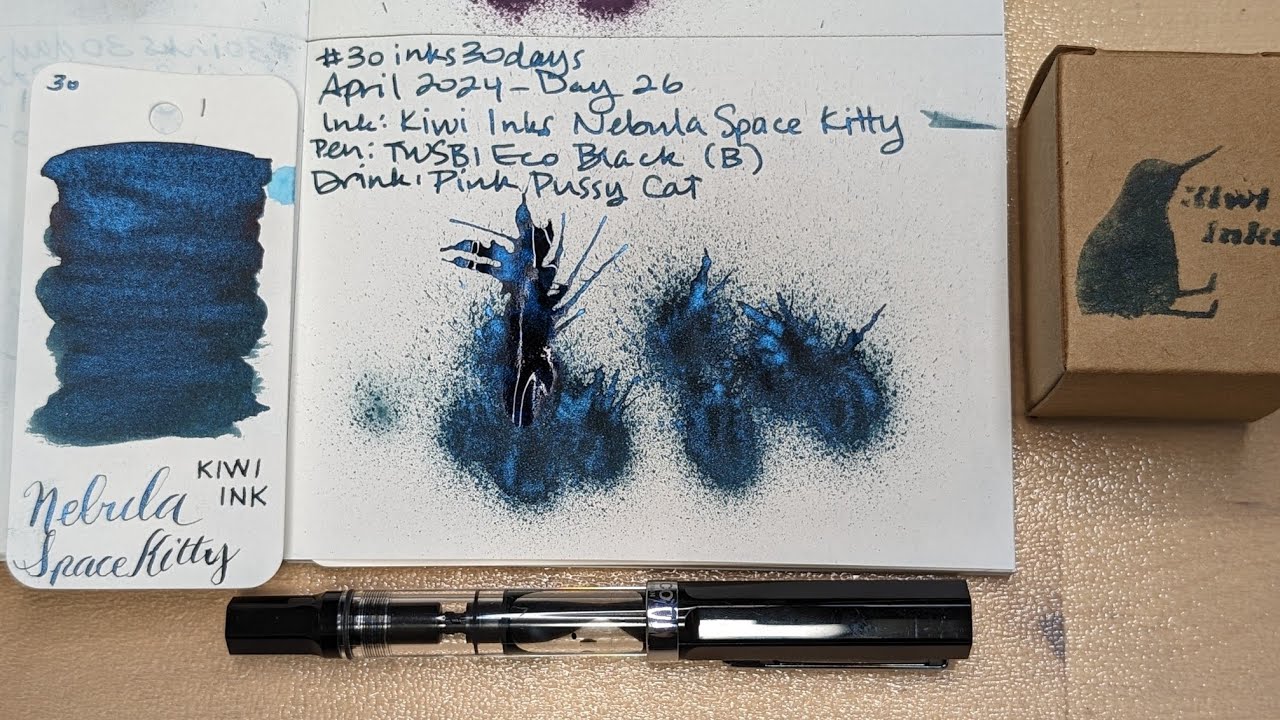 30
#30inks30days
April 2024 - Day 26
Ink: Kiwi Inks Nebula Space Kitty
Pen: TWSBI Eco Black (B)
Drink: Pink Pussy Cat
KIWI
INK
Nebula
Space Kitty
Kiwi
Inks